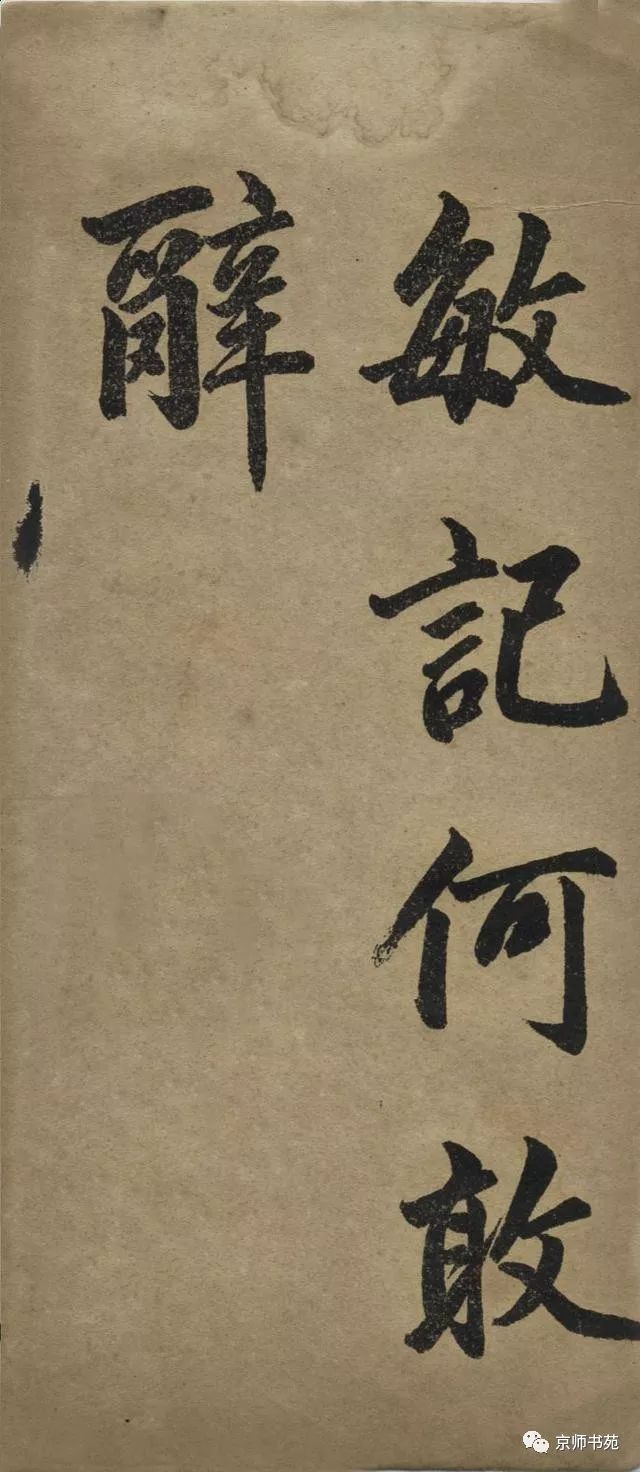 敏記何敢
辭
京师书苑